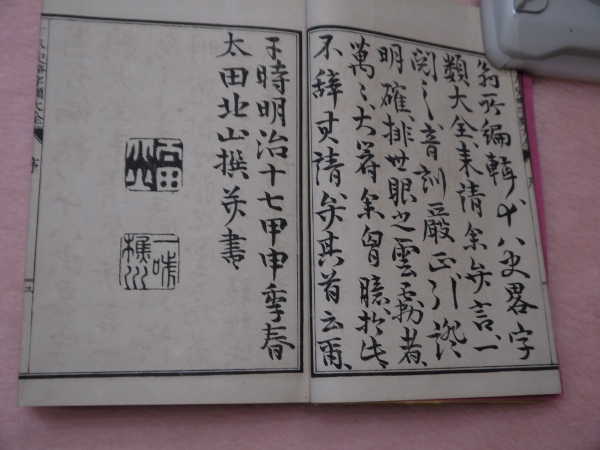 翁所編輯十八史畧字
類大全来請余弁言、一
閲之音訓嚴正引證
明確、排世眼之雲霧者、
萬〻大簭余曾臆於此
不辞其請弁其首云爾、
于時明治十七甲申季春
太田北山撰并書